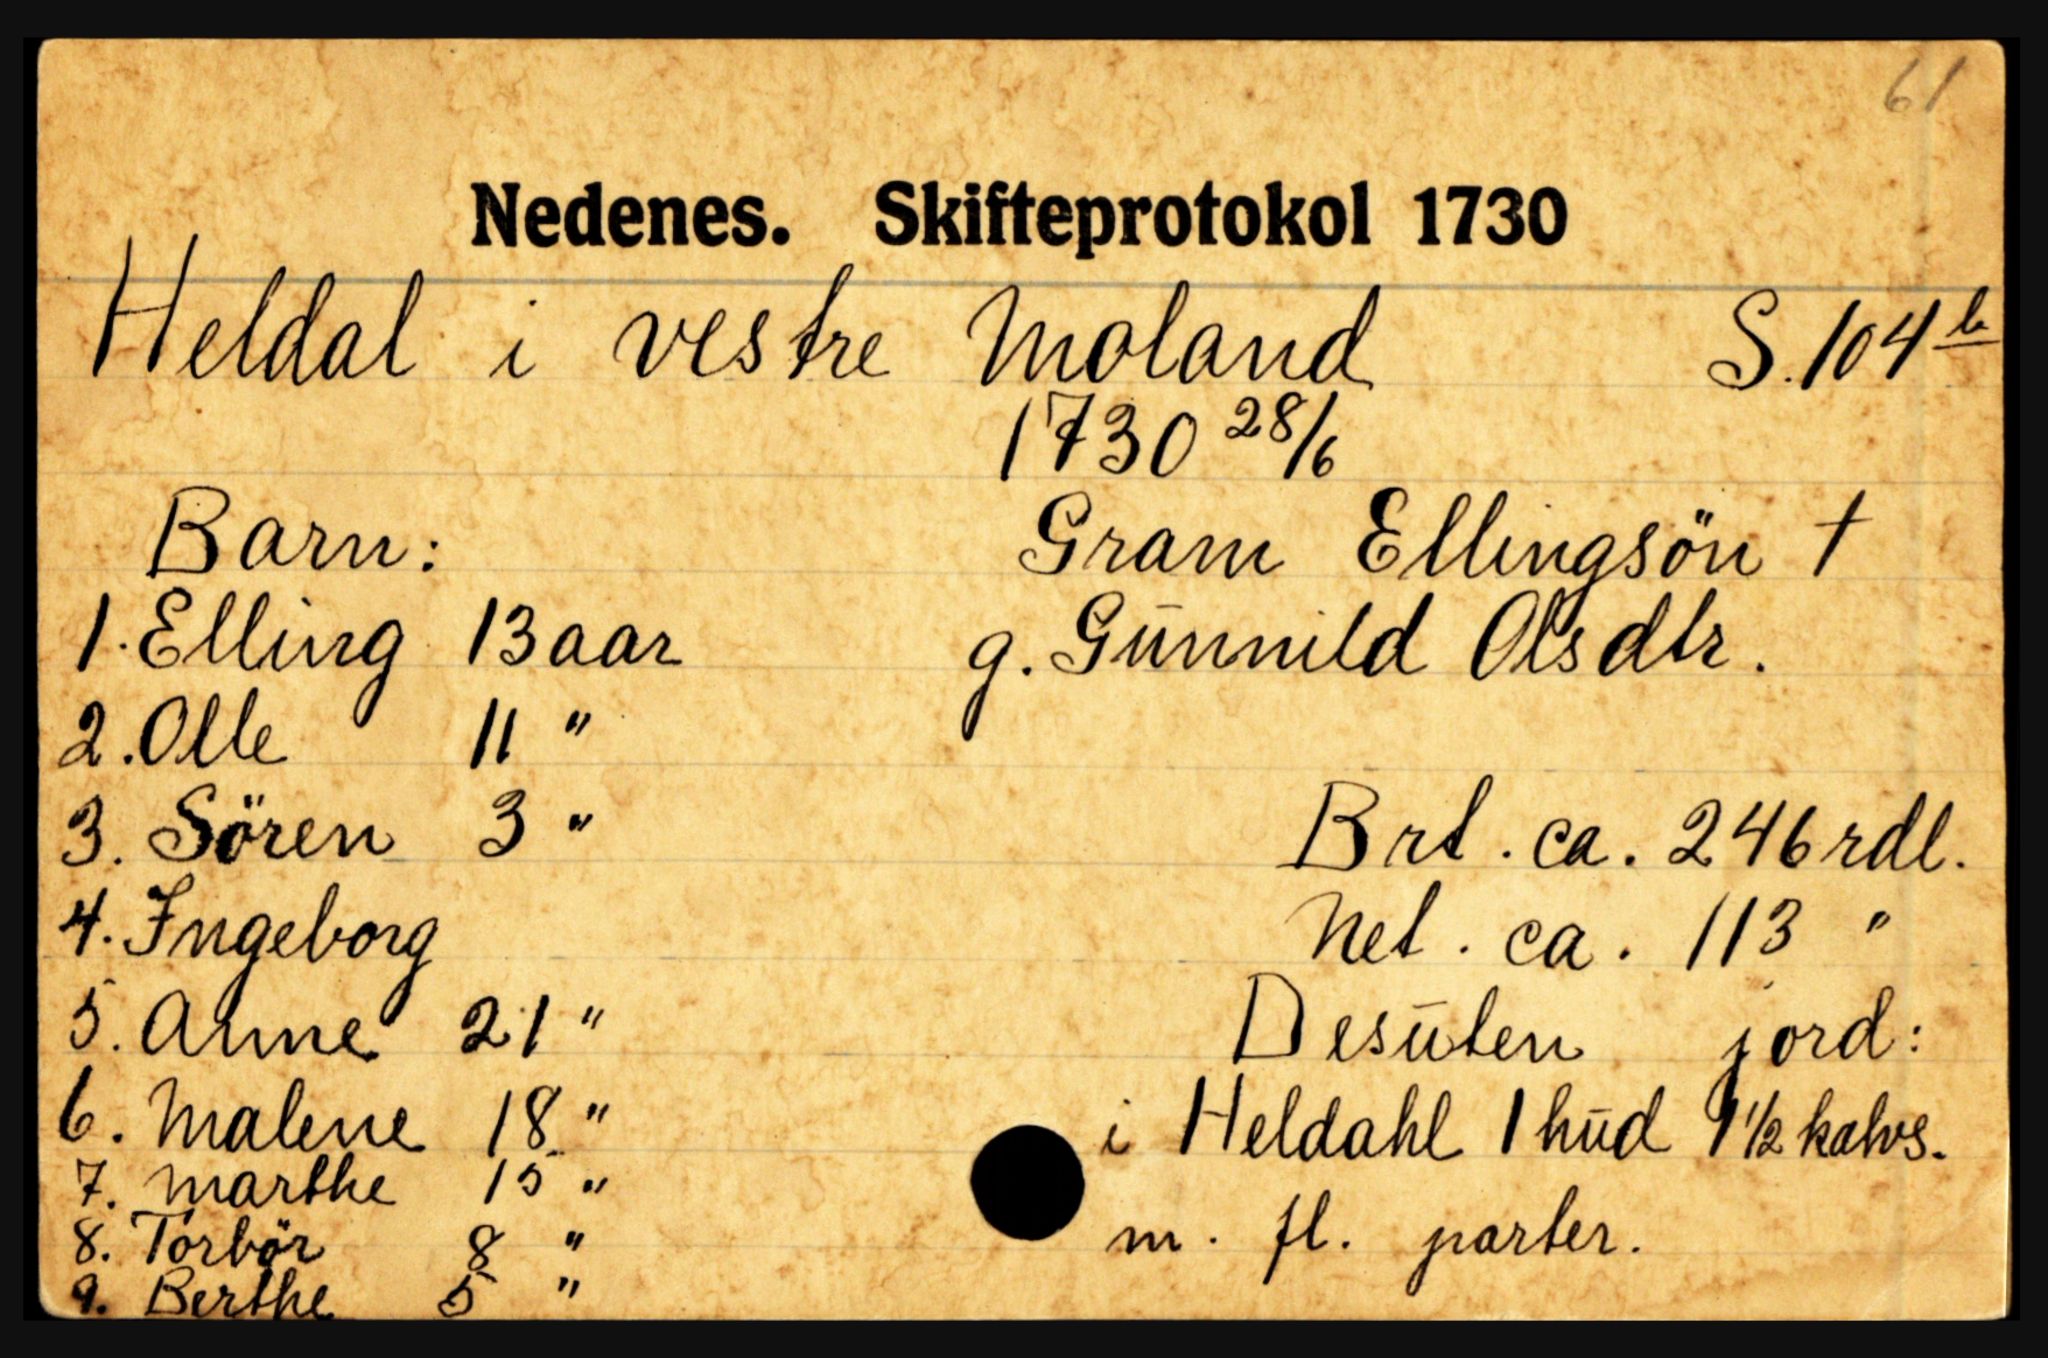 61
Nedenes. Skifteprotokol 1730
Heldal i vestre Moland S. 104 b
1730 28/6
Barn: Gram Ellingsön †
1. Elling 13 aar g. Gūnnild Olsdtr.
2. Olle 11 "
3. Sören 3 " Brt. ca. 246 rdl.
4. Ingeborg Net. ca. 113 "
5. Anne 21 " Desūten jord:
6. Malene 18 " i Heldahl 1 hūd 9 1/2 kalvs.
7. Marthe 15 "
8. Torbör 8 " m. fl. parter.
9. Berthe 5 "